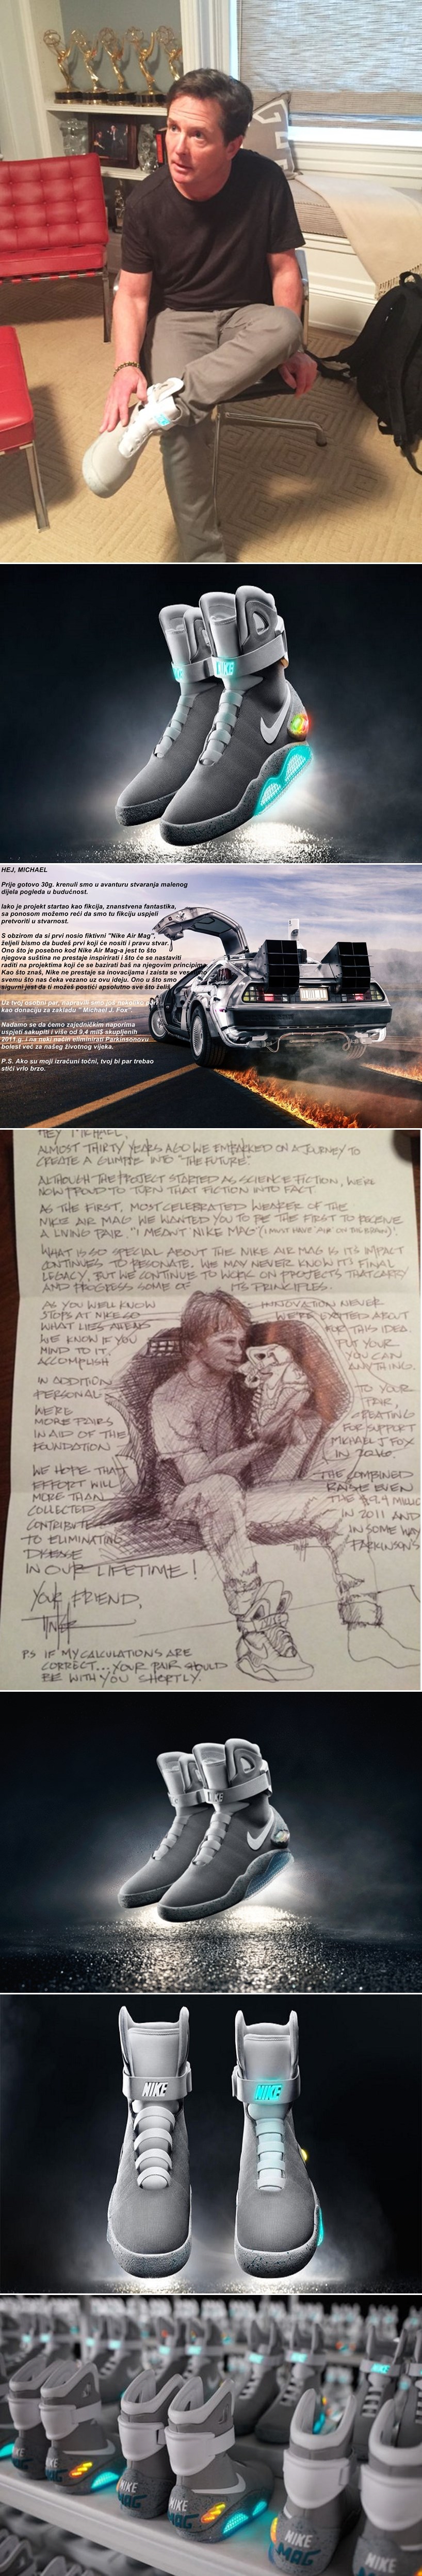 NIKE
HEJ, MICHAEL
Prije gotovo 30g. krenuli smo u avanturu stvaranja malenog
dijela pogleda u budućnost.
Iako je projekt startao kao fikcija, znanstvena fantastika,
sa ponosom možemo reći da smo tu fikciju uspjeli
pretvoriti u stvarnost.
S obzirom da si prvi nosio fiktivni "Nike Air Mag"
željeli bismo da budeš prvi koji će nositi i pravu stvar.
Ono što je posebno kod Nike Air Mag-a jest to što
njegova suština ne prestaje inspirirati i što će se nastaviti
raditi na projektima koji će se bazirati baš na njegovim principima.
Kao što znaš, Nike ne prestaje sa inovacijama i zaista se
svemu što nas čeka vezano uz ovu ideju. Ono u što smo
sigurni jest da ti možeš postići apsolutno sve što želiš.
Uz tvoj osobni par, napravili smo još
kao donaciju za zakladu " Michael J. Fox".
Nadamo se da ćemo zajedničkim naporima
uspjeti sakupiti i više od 9.4 mil$ skupljenih
2011 g. i na neki način eliminirati Parkinsonovu
bolest već za našeg životnog vijeka.
P.S. Ako su moji izračuni točni, tvoj bi par trebao
stići vrlo brzo.
HEY MICHAEL,
ALMOST THIRTY YEARS AGO WE EMBARKED ON A JOURNEY TO
CREATE A GLIMPSE INTO "THE FUTURE".
ALTHOUGH THE PROJECT STARTED AS SCIENCE FICTION, WE'RE
NOW PROUD TO TURN THAT FICTION INTO FACT.
AS THE FIRST, MOST CELEBRATED WEARER OF THE
NIKE AIR MAG WE WANTED YOU TO BE THE FIRST TO RECEIVE
A LIVING PAIR. "I MEANT NIKE MAG" (I MUST HAVE 'AIR' ON THE BRAIN)'.
WHAT IS SO SPECIAL ABOUT THE NIKE AIR MAG IS ITS IMPACT
CONTINUES TO RESONATE. WE MAY NEVER KNOW ITS FINAL
LEGACY, BUT WE CONTINUE TO WORK ON PROJECTS THAT CARRY
AND PROGRESS SOME OF ITS PRINCIPLES.
AS YOU WELL KNOW INNOVATION NEVER
STOPS AT NIKE SO WE'RE EXCITED ABOUT
WHAT LIES AHEAD FOR THIS IDEA.
WE KNOW IF YOU PUT YOUR
MIND TO IT, YOU CAN
ACCOMPLISH ANYTHING.
IN ADDITION TO YOUR
PERSONAL PAIR,
WE'RE CREATING
MORE PAIRS FOR SUPPORT
IN AID OF THE MICHAEL J FOX
FOUNDATION IN 2016.
WE HOPE THAT THE COMBINED
EFFORT WILL RAISE EVEN
MORE THAN THE $9.4 MILLIO
COLLECTED IN 2011 AND
CONTRIBUTE IN SOME WAY
TO ELIMINATING PARKINSON'S
DISEASE
IN OUR LIFETIME!
YOUR FRIEND,
PS IF MY CALCULATIONS ARE
CORRECT... YOUR PAIR SHOULD
BE WITH YOU SHORTLY.
NIKE
NIKE
NIKE
NIKE
NIKE
MAG
NIKE
MAG
NIKE
MAG